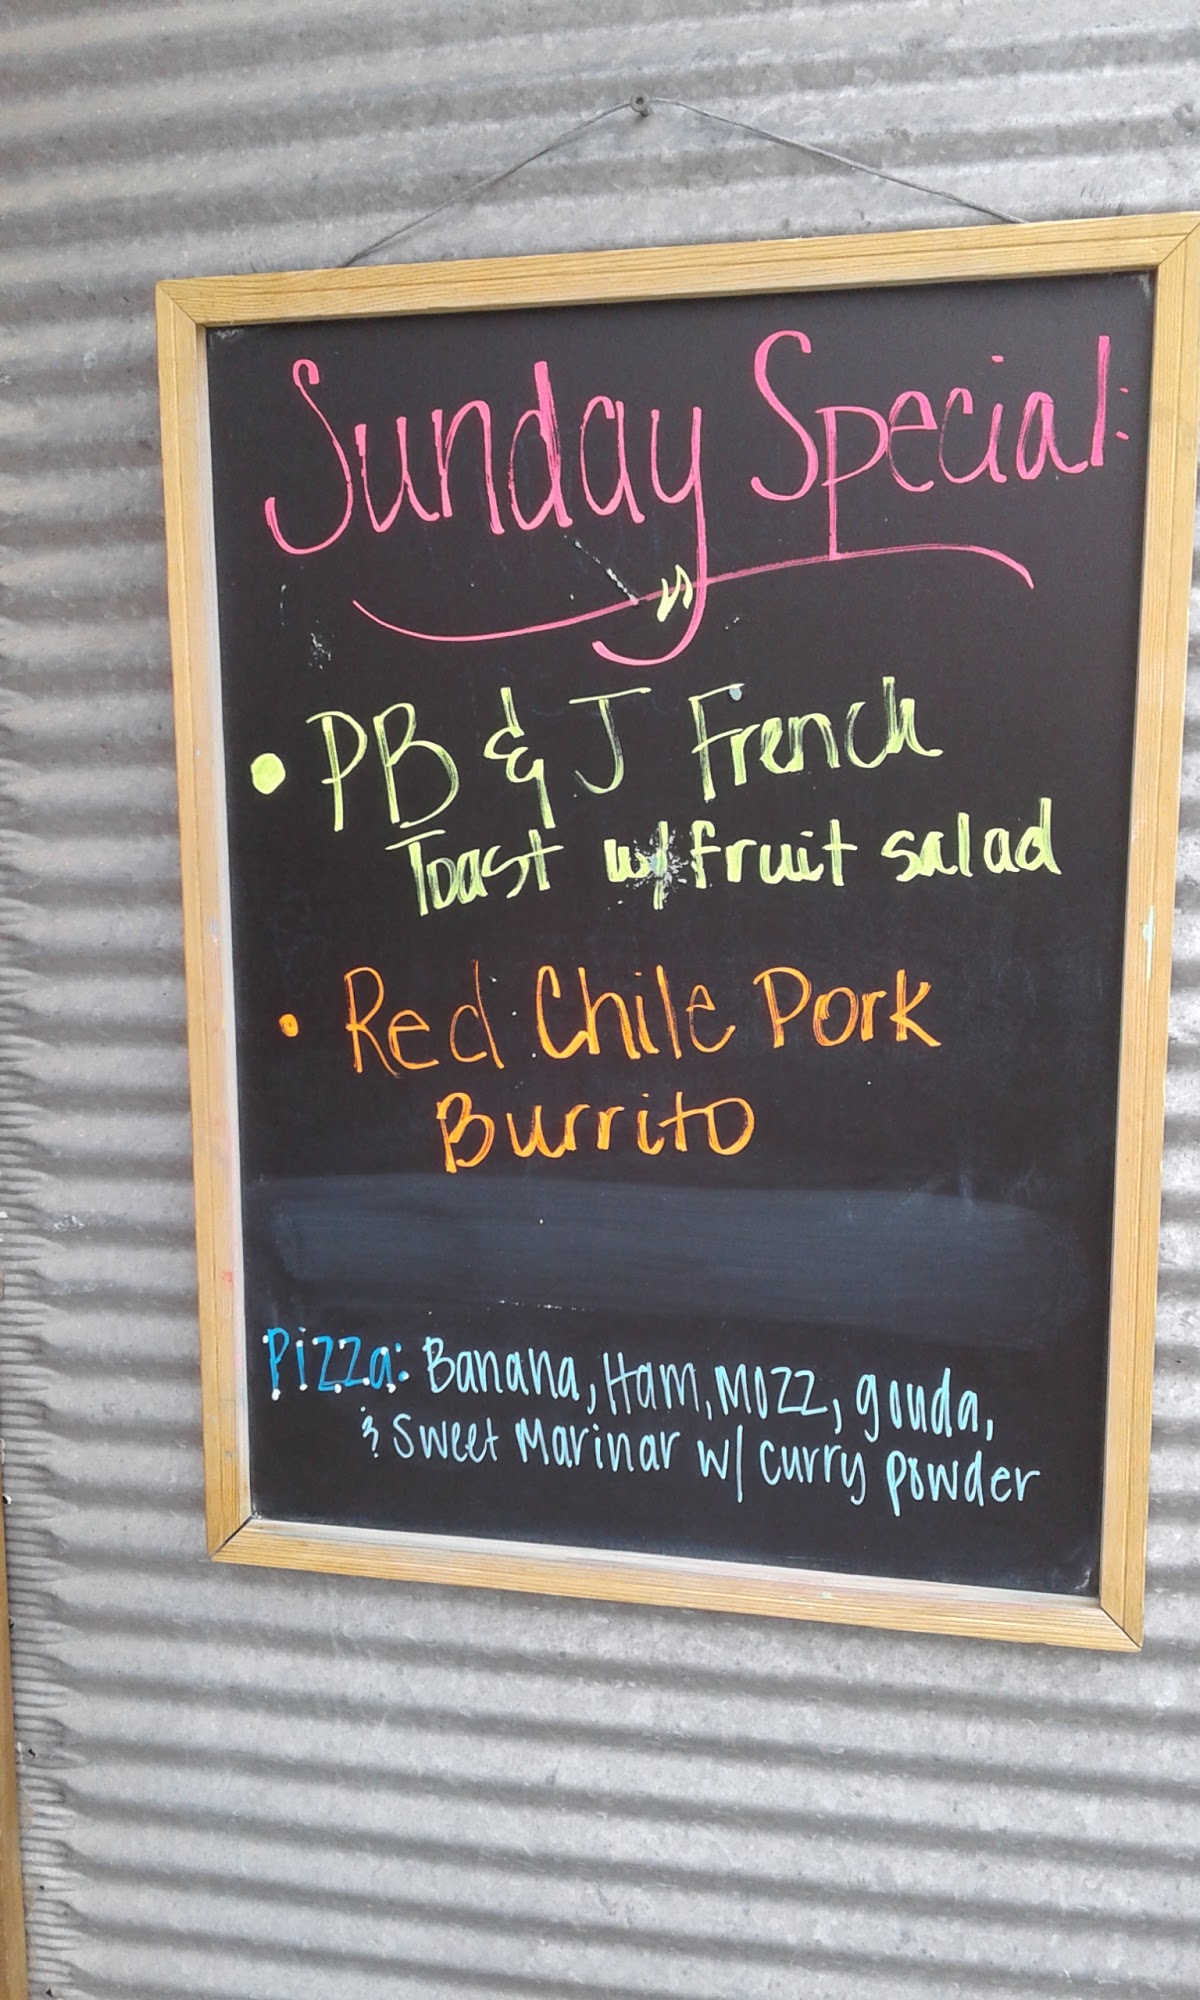 Sunday Special:
• PB & J French
Toast w/ fruit salad
• Red Chile Pork
Burrito
Pizza: Banana, Ham, Mozz, gouda,
& Sweet Marinar w/ curry powder